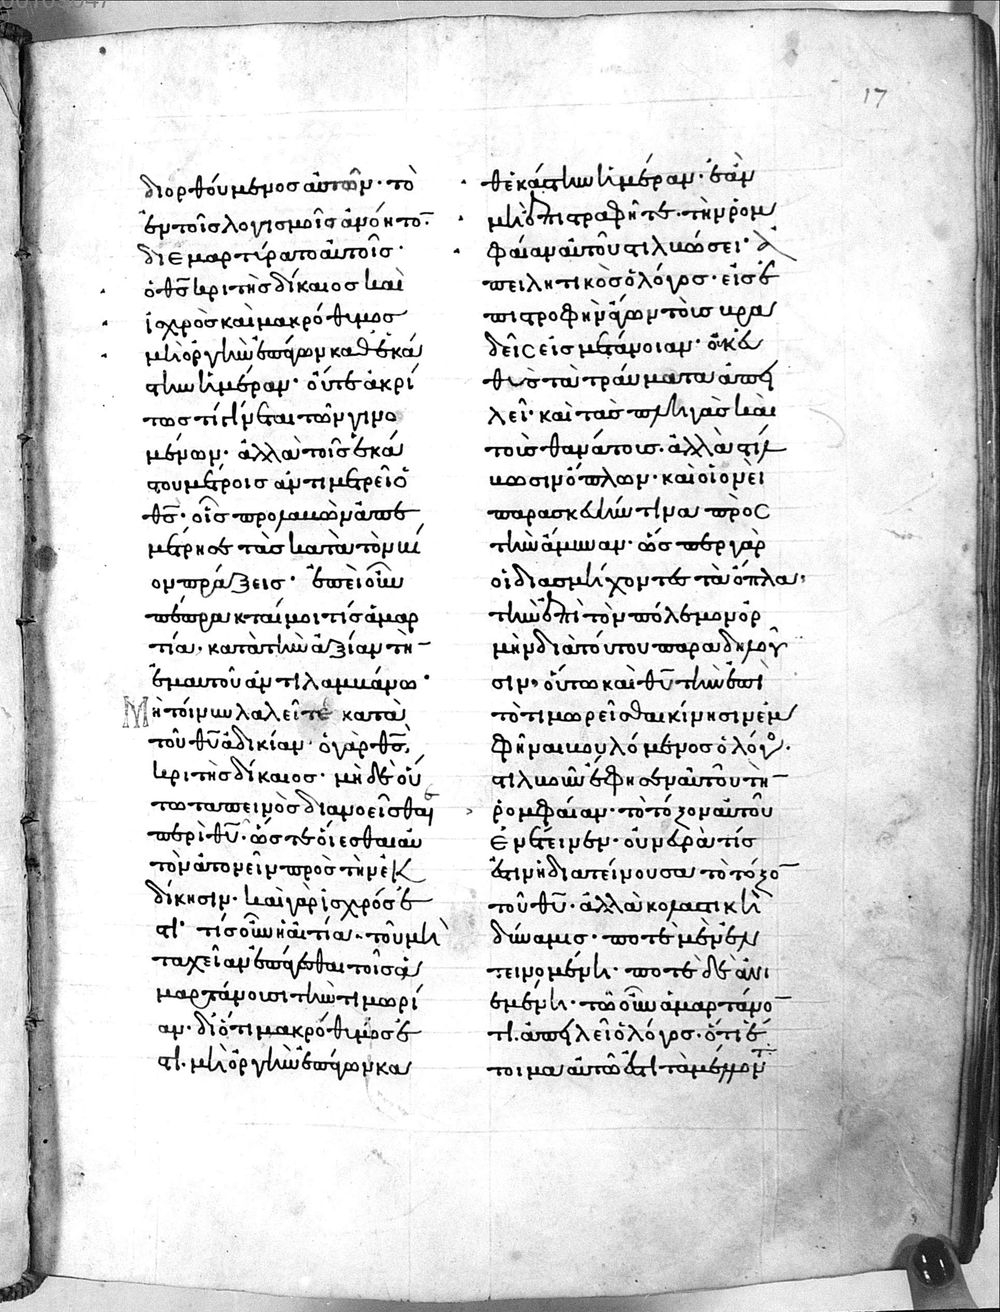 17
διορθούμενοσ αὐτῶν· τὸ
ἐν τοῖς λογισμοῖς ἀνόητο̄·
διεμαρτύρατο αὐτοῖσ·
ὁ θ̅σ̅ κριτὴς δίκαιος καὶ
ἰσχυρὸς καὶ μακρόθυμοσ
μὴ ὀργὴν ἐπάγων καθ' ἑκά
στην ἡμέραν· οὔτε ἀκρί
τωσ τί γίνεται τῶν γινο
μένων· ἀλλὰ τοῖς ἑκά
στου μέτροισ ἀντιμετρεῖ ὁ
θ̅σ̅· οἷς προλαβὼν ἀπε
μέτρησε τὰς κατὰ τὸν βί
ον πράξεις· ἐπεὶ οὖν
πέπρακταί μοι τίς ἁμαρ
τία, κατὰ τὴν ἀξίαν τῆ̄
ἐμαυτοῦ ἀντιλαμβάνω·
Μὴ τοίνυν λαλεῖτε κατὰ
τοῦ θ̅υ̅ ἀδικίαν· ὁ γὰρ θ̅σ̅,
κριτὴς δίκαιοσ· μὴ δὲ οὕ
τω ταπεινὸς διανοεῖσθαι
περὶ θ̅υ̅· ὥστε οἴεσθαι αὐ
τὸν ἀτονεῖν πρὸς τὴν ἐκ
δίκησιν· καὶ γὰρ ἰσχυρός ἐ
στι· τίσ οὖν ἡ αἰτία τοῦ μὴ
ταχεῖαν ἐπάγεσθαι τοῖσ ἁ
μαρτάνουσι τὴν τιμωρί
αν· διότι μακρόθυμόσ ἐ
στι. μὴ ὀργὴν ἐπάγων κα
θ' ἑκάστην ἡμέραν· ἐὰν
μὴ ἐπιστραφῆτε· τὴν ῥομ
φαίαν αὐτοῦ στιλβώσει· ἀ
πειλητικὸς ὁ λόγοσ· εἰσ ἐ
πιστροφὴν ἄγων τοὺς βρα
δεῖς εἰς μετάνοιαν· οὐκ εὐ
θὺσ τὰ τραύματα ἀπει
λεῖ· καὶ τὰσ πληγὰσ καὶ
τοὺσ θανάτουσ. ἀλλὰ στίλ
βωσιν ὅπλων· καὶ οἱονεὶ
παρασκευήν τινα πρὸς
τὴν ἄμυναν· ὥσπερ γὰρ
οἱ διασμήχοντες τὰ ὅπλα,
τὴν ἐπὶ τὸν πόλεμον ὁρ
μὴν διὰ τούτου παραδηλοῦ
σιν, οὕτω καὶ θ̅υ̅ τὴν ἐπὶ
τὸ τιμωρεῖσθαι κίνησιν ἐμ
φῆναι βουλόμενοσ ὁ λόγοσ·
στιλβοῦν ἔφησεν αὐτοῦ τὴ̄
ῥομφαίαν· τὸ τόξον αὐτοῦ
ἐνέτεινεν· οὐ νευρὰ τίς
ἐστιν ἡ διατείνουσα τὸ τόξο̄
τοῦ θ̅υ̅· ἀλλὰ κολαστικὴ
δύναμισ· ποτὲ μὲν ἐν
τεινομένη· ποτὲ δὲ ἀνι
εμένη· τῷ οὖν ἁμαρτάνο̄
τι. ἀπειλεῖ ὁ λόγοσ· ὅτι ἕ
τοιμα αὐτῷ ἐστι τὰ μέλλον